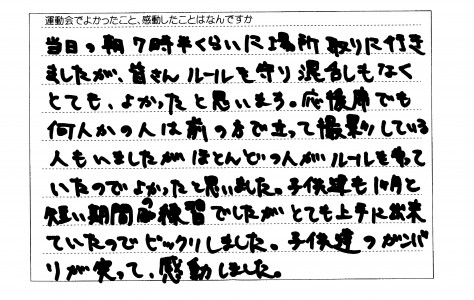 運動会でよかったこと、感動したことはなんですか
当日の朝7時半くらいに場所取りに行き
ましたが、皆さんルールを守り混合もなく
とても、よかったと思います。応援席でも
何人かの人は前の方で立って撮影している
人もいましたがほとんどの人がルールを守って
いたのでよかったと思いました。子供達も1ヶ月と
短い期間の練習でしたがとても上手に出来
ていたのでビックリしました。子供達のガンバ
リが実って、感動しました。